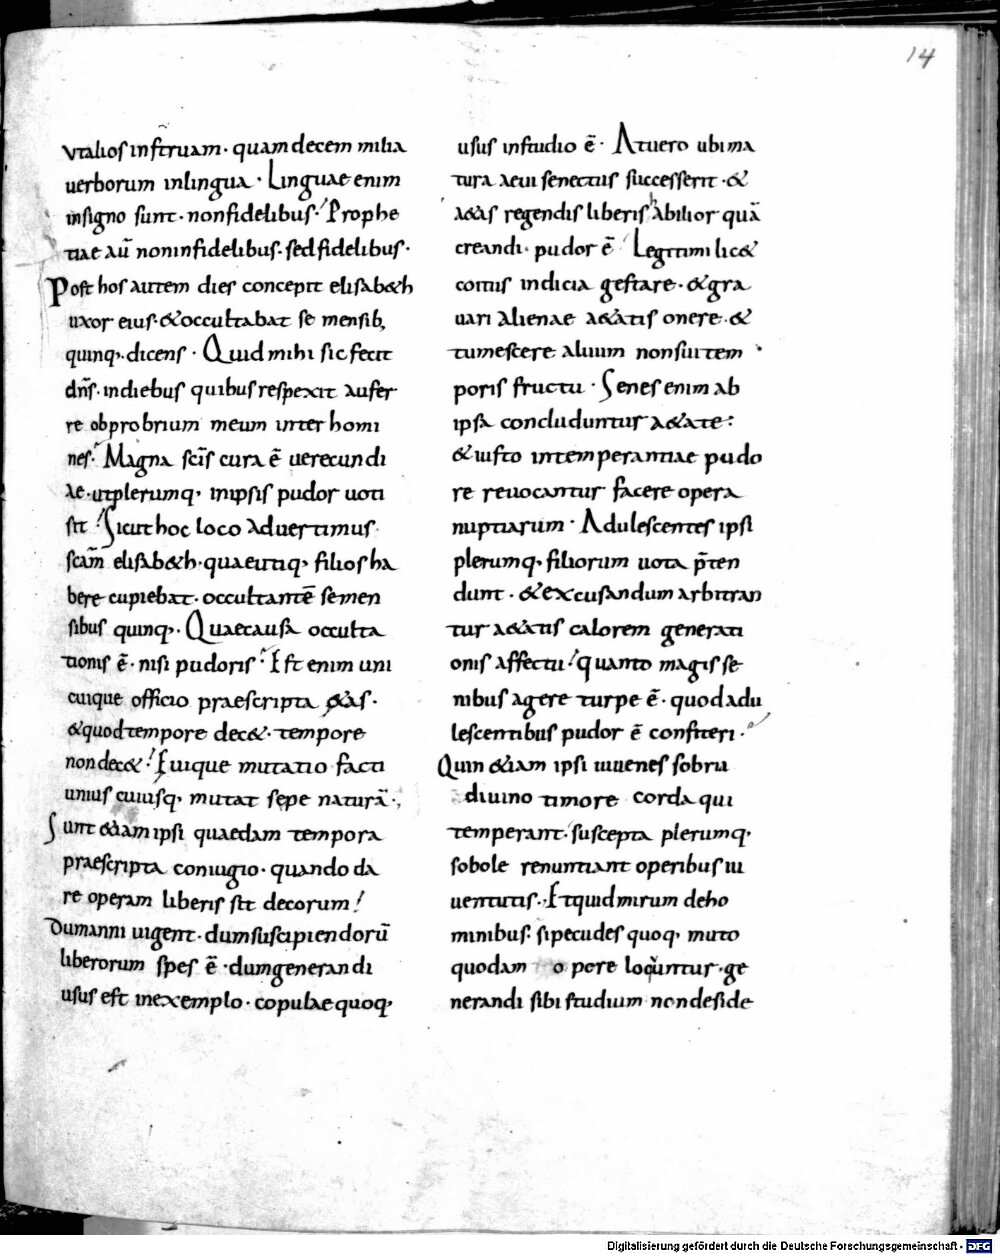 14
vtalios instruam· quam decem milia
uerborum inlingua· Linguae enim
insigno sunt· non fidelibus· Prophe
tiae aū non infidelibus· sed fidelibus·
Post hos autem dies concepit elisab&h
uxor eius· &occultabat se mensib;
quinq;· dicens· Quid mihi sic fecit
dn̄s· indiebus quibus respexit aufer
re obprobrium meum inter homi
nes· Magna sc̄is cura ē uerecundi
ae· ut plerumq; inipsis pudor uoti
sit! Sicut hoc loco aduertimus
scām elisab&h· quae utiq; filios ha
bere cupiebat· occultantē se men
sibus quinq;· Quae causa occulta
tionis ē· nisi pudoris· Est enim uni
cuique officio praescripta &as·
&quod tempore dec&· tempore
non dec&! Euique mutatio facti
unius cuiusq; mutat sepe naturā·,
Sunt &iam ipsi quaedam tempora
praescripta coniugio· quando da
re operam liberis sit decorum!
Dum anni uigent· dum suscipiendorū
liberorum spes ē· dum generandi
usus est inexemplo· copulae quoq;
usus instudio ē· Atuero ubi ma
tura aeui senectus successerit· &
a&as regendis liberis habilior quā
creandi· pudor ē Legitimi lic&
coitus indicia gestare· &gra
uari alienae a&atis onere· &
tumescere aluum non sui tem
poris fructu· Senes enim ab
ipsa concluduntur a&ate:
&iusto intemperantiae pudo
re reuocantur facere opera
nuptiarum· Adulescentes ipsi
plerumq; filiorum uota p̄ten
dunt· &excusandum arbitran
tur a&atis calorem generati
onis affectu! quanto magis se
nibus agere turpe ē· quod adu
lescentibus pudor ē confiteri·
Quin &iam ipsi iuuenes sobrii
diuino timore corda qui
temperant· suscepta plerumq;
sobole renuntiant operibus iu
uentutis· Etquid mirum deho
minibus· si pecudes quoq; muto
quodam opere loquntur· ge
nerandi sibi studium non deside
Digitalisierung gefördert durch die Deutsche Forschungsgemeinschaft - DFG